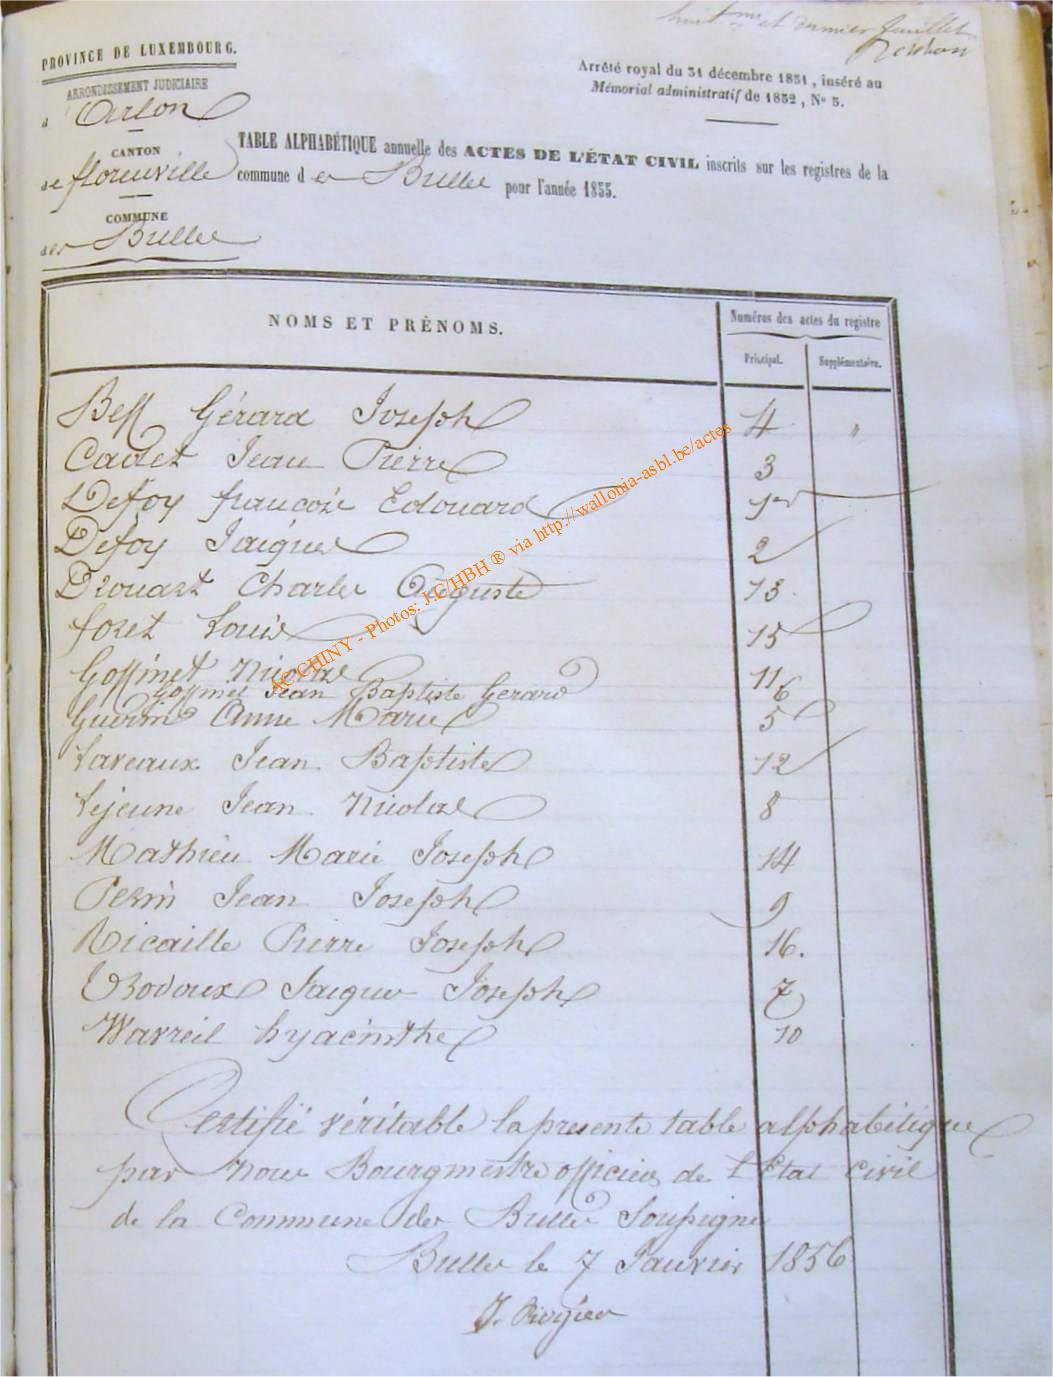 huitme et dernier feuillet
PROVINCE DE LUXEMBOURG.
ARRONDISSEMENT JUDICIAIRE
d'Arlon
CANTON
de florenville
COMMUNE
de Bulle
Arrêté royal du 31 décembre 1851, inséré au
Mémorial administratif de 1852, No 5.
TABLE ALPHABÉTIQUE annuelle des ACTES DE L'ÉTAT CIVIL inscrits sur les registres de la
commune de Bulle pour l'année 1855.
NOMS ET PRÉNOMS.
Numéros des actes du registre
Principal. Supplémentaire.
Gérard Joseph 4 "
Jean Pierre 3
Defoy françois Edouard 1er
Defoy Jacques 2
Drouart Charles Auguste 13.
foret Louis 15
Goffinet Nicolas 11
Goffinet Jean Baptiste Gérard 6
Guerin Anne Marie 5
Lavaux Jean Baptiste 12
Lejeune Jean Nicolas 8
Mathieu Marie Joseph 14
Perin Jean Joseph 9
Nicaille Pierre Joseph 16.
Jacques Joseph 7
Wavreil hyacinthe 10
Certifié véritable la présente table alphabétique
par nous Bourgmestre officier de l'Etat civil
de la Commune de Bulle Soussigné
Bulle le 7 Janvier 1856
ACCHINY - Photos: J.C/HBH ® via http://wallonia-asbl.be/actes